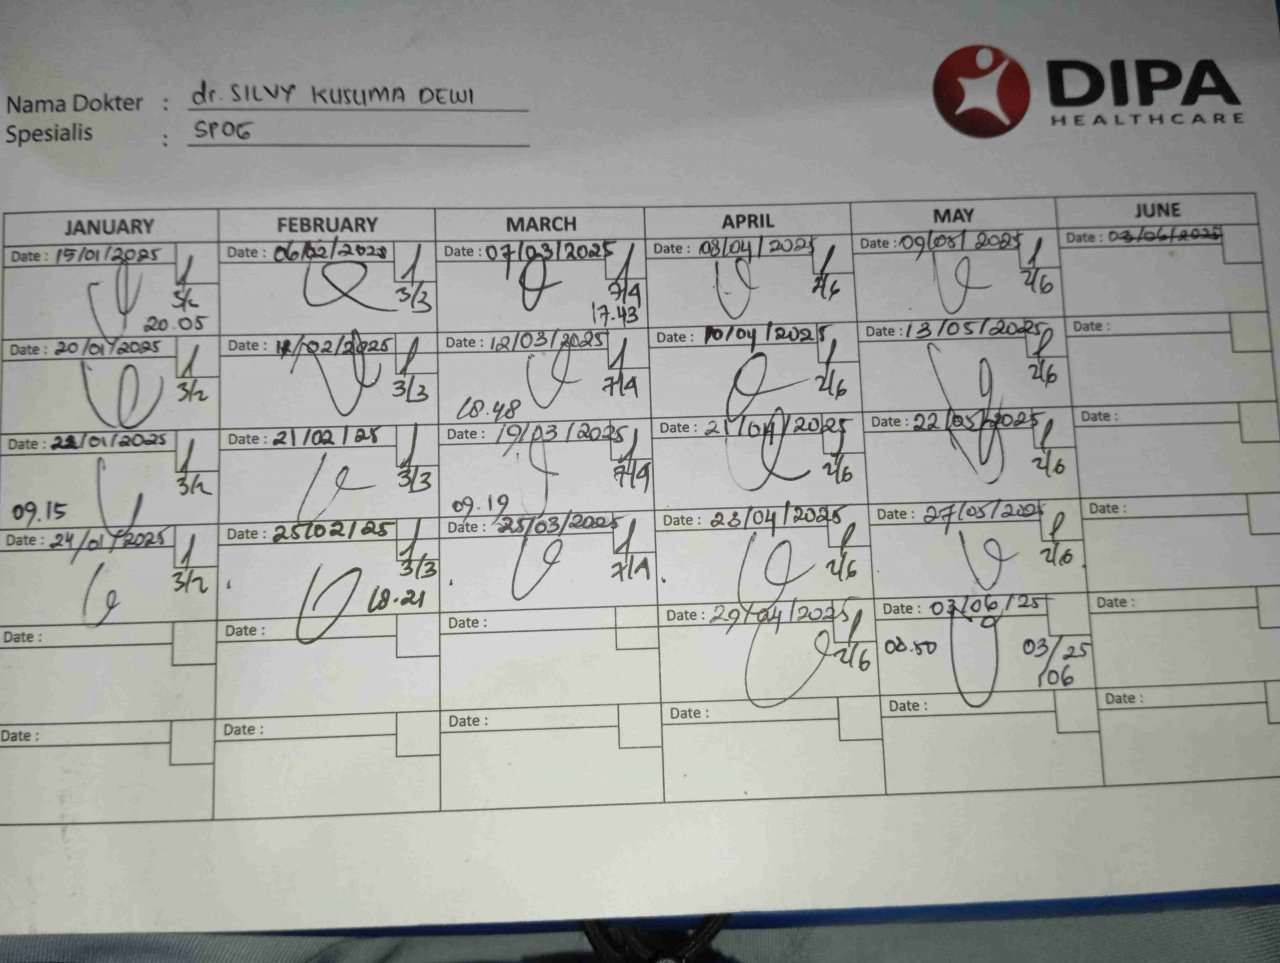 DIPA
HEALTHCARE
Nama Dokter : dr. SILVY KUSUMA DEWI
Spesialis : SPOG
JANUARY FEBRUARY MARCH APRIL MAY JUNE
Date : 15/01/2025 Date : 06/02/2025 Date : 07/03/2025 Date : 08/04/2025 Date : 09/05/2025 Date : 03/06/2025
3/2 3/3 7/4 2/6 2/6
20.05 17.43
Date : 20/01/2025 Date : /02/2025 Date : 12/03/2025 Date : 10/04/2025 Date : 13/05/2025 Date :
3/2 3/3 7/4 2/6 2/6
18.48
Date : 22/01/2025 Date : 21/02/25 Date : 19/03/2025 Date : 21/04/2025 Date : 22/05/2025 Date :
3/2 3/3 7/4 2/6 2/6
09.15 09.19
Date : 24/01/2025 Date : 25/02/25 Date : 25/03/2025 Date : 23/04/2025 Date : 27/05/2025 Date :
3/2 3/3 7/4 2/6 2/6
18.21
Date : Date : Date : Date : 29/04/2025 Date : 03/06/25 Date :
2/6 08.50 03/06/25
Date : Date : Date : Date : Date : Date :